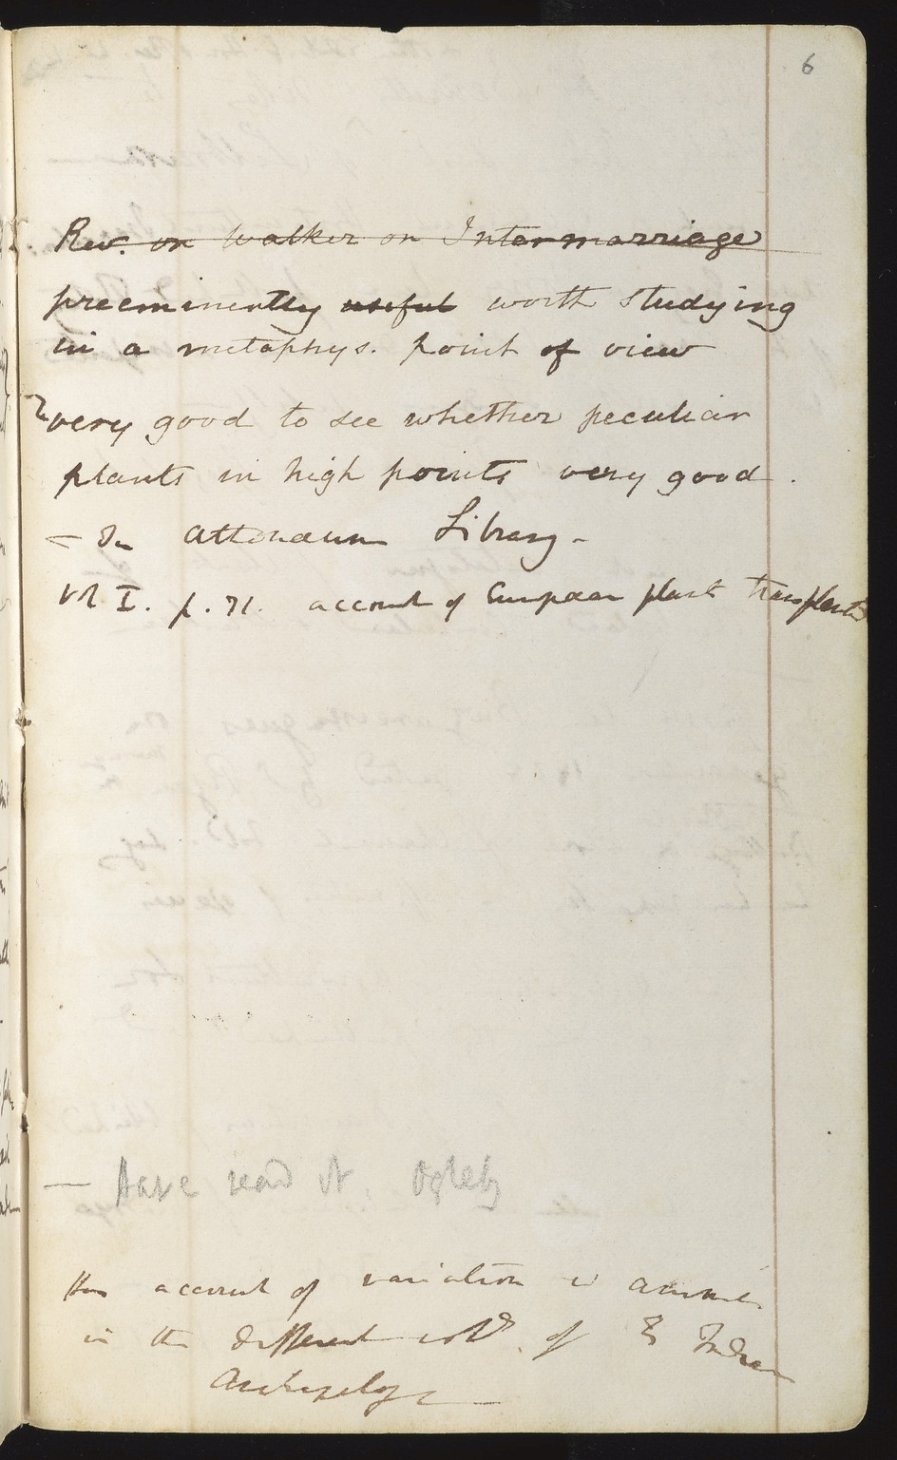 6
Rev. on Walker on Intermarriage
preeminently useful worth studying
in a metaphys. point of view
very good to see whether peculiar
plants in high points very good.
— In Athenaeum Library —
Vol I. p. 71. account of European plants transplanted
— Have read it. Ogleby
Has account of variation in animals
in the different isl.ds of E Indian
Archipelago —